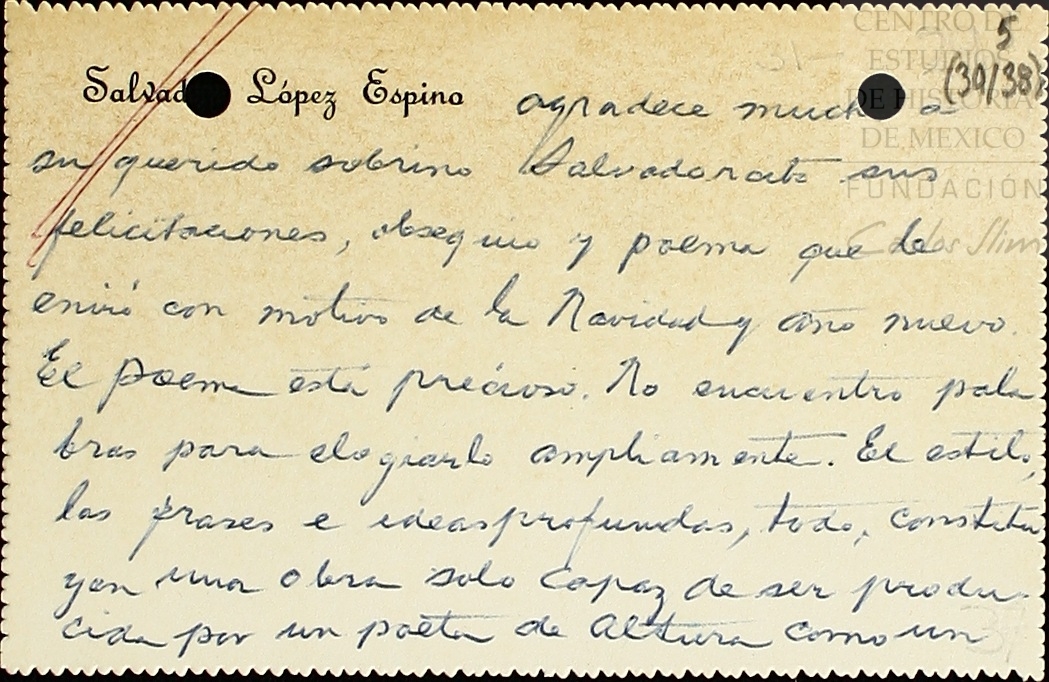 CENTRO DE
ESTUDIOS
DE HISTORIA
DE MEXICO
FUNDACIÓN
Carlos Slim
5
(39/38)
Salvador López Espino agradece mucho a
su querido sobrino Salvadorcito sus
felicitaciones, obsequio y poema que le
envió con motivo de la Navidad y año nuevo.
El poema está precioso. No encuentro pala
bras para elogiarlo ampliamente. El estilo,
las frases e ideas profundas, todo, constitu
yen una obra solo capaz de ser produ-
cida por un poeta de altura como un
37